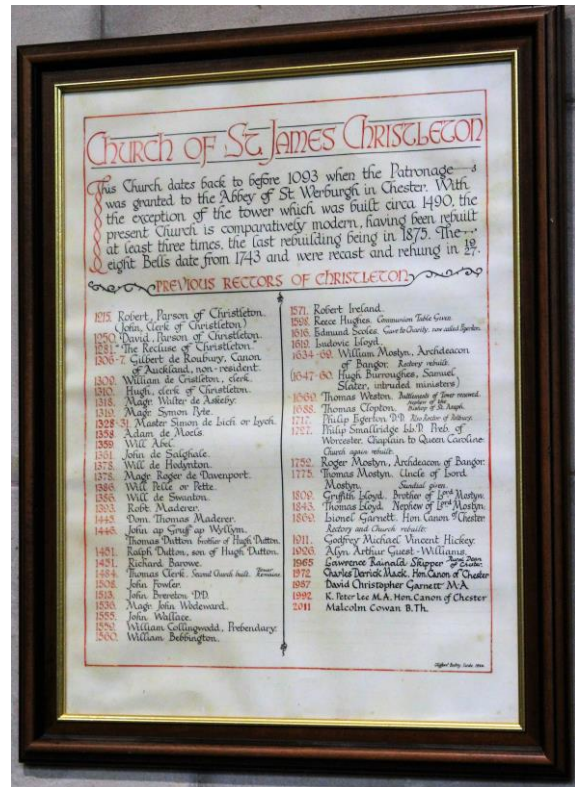 Church of St James Christleton
This Church dates back to before 1093 when the Patronage
was granted to the Abbey of St Werburgh in Chester. With
the exception of the tower which was built circa 1490, the
present Church is comparatively modern, having been rebuilt
at least three times, the last rebuilding being in 1875. The
eight Bells date from 1743 and were recast and rehung in 1927.
PREVIOUS RECTORS OF CHRISTLETON
1215. Robert, Parson of Christleton.
(John, Clerk of Christleton)
1250. David, Parson of Christleton.
1281. The Recluse of Christleton.
1306-7. Gilbert de Roubury, Canon
of Auckland, non-resident.
1309. William de Cristleton, clerk.
1310. Hugh, clerk of Christleton.
1318. Magr. Walter de Askeby.
1319. Magr. Symon Pyte.
1328-31. Master Simon de Lich or Lych.
1358. Adam de Moels.
1359. Will Abel.
1361. John de Salghale.
1373. Will de Hodynton.
1378. Magr Roger de Davenport.
1386. Will Pelle or Pette.
1386. Will de Swanton.
1393. Robt. Maderer.
1445. Dom. Thomas Maderer.
1446. John ap Gruff ap Wyllym.
Thomas Dutton brother of Hugh Dutton.
1451. Ralph Dutton, son of Hugh Dutton.
1451. Richard Barowe.
1484. Thomas Clerk. Second Church built. Tower Remains.
1508. John Fowler.
1513. John Brereton D.D.
1536. Magr. John Wodeward.
1555. John Wallace.
William Collingwood, Prebendary.
1560. William Bebbington.
1571. Robert Ireland.
1598. Reece Hughes. Communion Table Given.
1616. Edmund Scoles. Gave to Charity, now called
1619. Ludovic Lloyd.
1634-69. William Mostyn, Archdeacon
of Bangor. Rectory rebuilt.
(1647-60. Hugh Burroughes, Samuel
Slater, intruded ministers)
1669. Thomas Weston. Battlements of Tower renewed.
1688. Thomas Clopton. Nephew of the Bishop of St. Asaph.
1717. Philip Egerton D.D. Also Rector of
1727. Philip Smallridge LL.D. Preb. of
Worcester. Chaplain to Queen Caroline.
Church again rebuilt.
1752. Roger Mostyn, Archdeacon of Bangor.
1775. Thomas Mostyn. Uncle of Lord
Mostyn. Sundial given.
1809. Griffith Lloyd. Brother of Lord Mostyn.
1843. Thomas Lloyd. Nephew of Lord Mostyn.
1869. Lionel Garnett. Hon Canon of Chester
Rectory and Church rebuilt.
1911. Godfrey Michael Vincent Hickey.
1926. Alyn Arthur Guest-Williams.
1965 Lawrence Rainald Skipper Rural Dean of Chester.
1972 Charles Derrick Mack. Hon. Canon of Chester
1987 David Christopher Garnett M.A.
1992 K. Peter Lee M.A. Hon. Canon of Chester
2011 Malcolm Cowan B.Th.